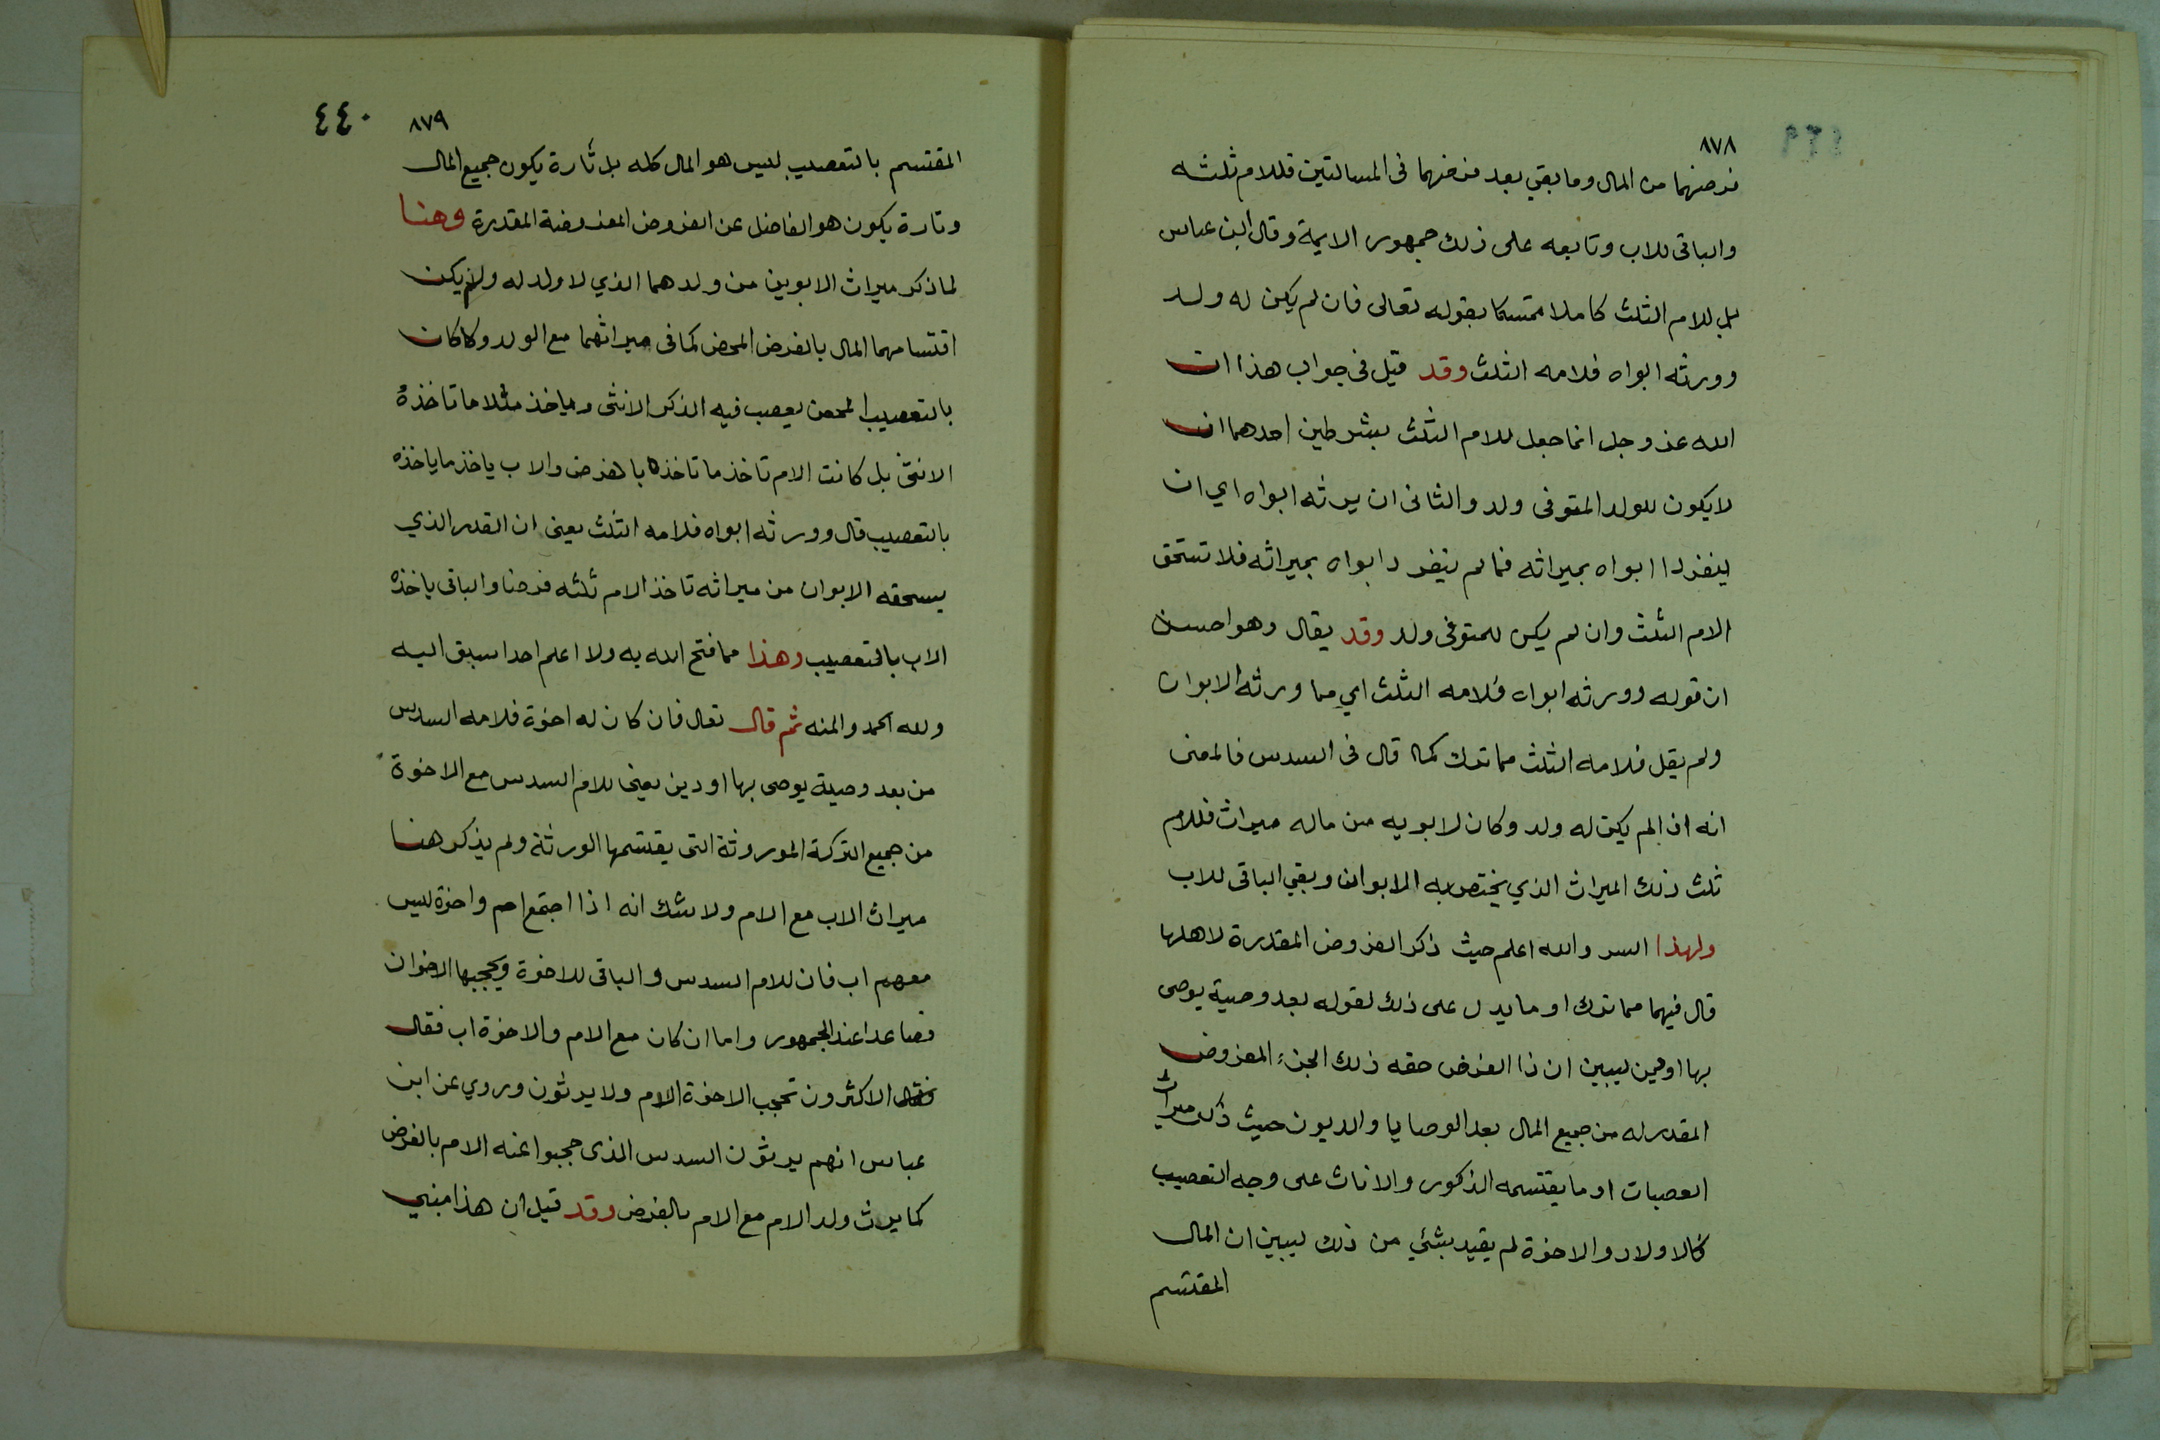 ٨٧٨
فرضهما من المال وما بقي بعد فرضهما فى المسالتين فللام ثلثه
والباقى للاب وتابعه على ذلك جمهور الايمة وقال ابن عباس
بل للام الثلث كاملا متمسكا بقوله تعالى فان لم يكن له ولد
وورثه ابواه فلامه الثلث وقد قيل فى جواب هذا ان
الله عز وجل انما جعل للام الثلث بشرطين احدهما ان
لا يكون للولد المتوفى ولد والثانى ان يرثه ابواه اي ان
ينفردا ابواه بميراثه فما لم ينفرد ابواه بميراثه فلا تستحق
الام الثلث وان لم يكن للمتوفى ولد وقد يقال وهو احسن
ان قوله وورثه ابواه فلامه الثلث اي مما ورثه الابوان
ولم يقل فلامه الثلث مما ترك كما قال فى السدس فالمعنى
انه اذا لم يكن له ولد وكان لابويه من ماله ميراث فللام
ثلث ذلك الميراث الذي يختص به الابوان وبقي الباقى للاب
ولهذا السر والله اعلم حيث ذكر الفروض المقدرة لاهلها
قال فيهما مما ترك او ما يدل على ذلك لقوله بعد وصية يوصى
بها او دين ليبين ان ذا الفرض حقه ذلك الجزء المفروض
المقدر له من جميع المال بعد الوصايا والديون حيث ذكر ميراث
العصبات او ما يقتسمه الذكور والاناث على وجه التعصيب
كالاولاد والاخوة لم يقيد بشئي من ذلك ليبين ان المال
المقتسم
٨٧٩ ٤٤٠
المقتسم بالتعصيب ليس هو المال كله بل تارة يكون جميع المال
وتارة يكون هو الفاضل عن الفروض المفروضة المقدرة وهنا
لما ذكر ميراث الابوين من ولدهما الذي لا ولد له ولم يكن
اقتسامهما المال بالفرض المحض كما فى ميراثهما مع الولد ولا كان
بالتعصيب المحض يعصب فيه الذكر الانثى وياخذ مثلا ما تاخذه
الانثى بل كانت الام تاخذ ما تاخذه بالفرض والاب ياخذ ما ياخذه
بالتعصيب قال وورثه ابواه فلامه الثلث يعنى ان القدر الذي
يستحقه الابوان من ميراثه تاخذ الام ثلثه فرضا والباقى ياخذه
الاب بالتعصيب وهذا مما فتح الله به ولا اعلم احدا سبق اليه
ولله الحمد والمنه ثم قال تعالى فان كان له اخوة فلامه السدس
من بعد وصية يوصى بها او دين يعنى للام السدس مع الاخوة
من جميع التركة الموروثة التى يقتسمها الورثة ولم يذكر هنا
ميراث الاب مع الام ولا شك انه اذا اجتمع ام واخوة ليس
معهم اب فان للام السدس والباقى للاخوة ويحجبها الاخوان
فصاعدا عند الجمهور واما ان كان مع الام والاخوة اب فقال
فقال الاكثرون تحجب الاخوة الام ولا يرثون وروي عن ابن
عباس انهم يرثون السدس الذى حجبوا عنه الام بالفرض
كما يرث ولد الام مع الام بالفرض وقد قيل ان هذا مبني